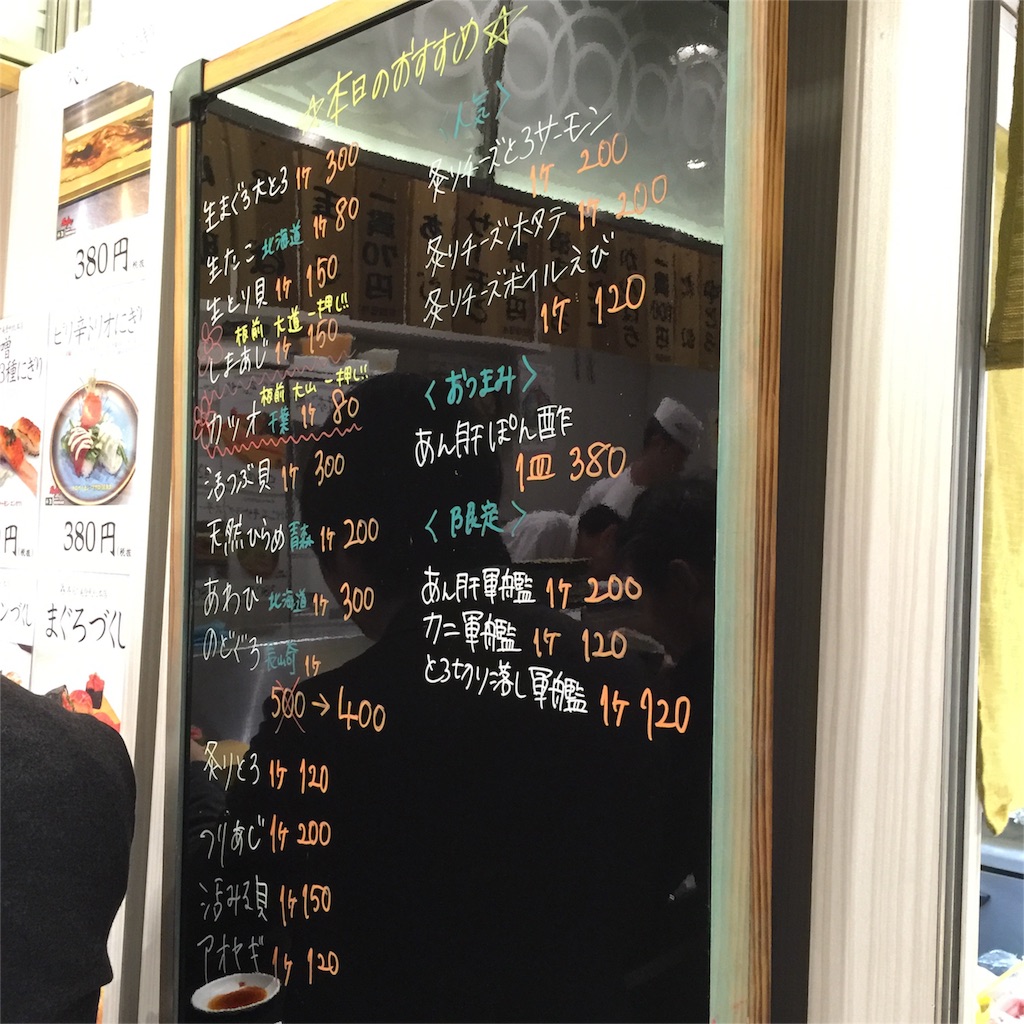 ☆本日のおすすめ☆
生まぐろ大とろ 1ケ 300
生たこ 北海道 1ケ 80
生とり貝 1ケ 150
板前 大道 一押し!!
しまあじ 1ケ 150
板前 大山 一押し!!
カツオ 千葉 1ケ 80
活つぶ貝 1ケ 300
天然ひらめ 青森 1ケ 200
あわび 北海道 1ケ 300
のどぐろ 長崎 1ケ
500→400
炙りとろ 1ケ 120
つりあじ 1ケ 200
活みる貝 1ケ 150
アオヤギ 1ケ 120
〈人気〉
炙りチーズとろサーモン
1ケ 200
炙りチーズホタテ 1ケ 200
炙りチーズボイルえび
1ケ 120
〈おつまみ〉
あん肝ぽん酢
1皿 380
〈限定〉
あん肝軍艦 1ケ 200
カニ軍艦 1ケ 120
とろ切り落し軍艦 1ケ 120
380円
ピリ辛ユリオにぎり
3種にぎり
380円
円
まぐろづくし
づくし